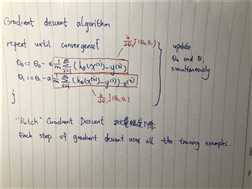 Gradient descent algorithm
repeat until convergence{
∂/∂θ₀ J(θ₀,θ₁)
θ₀ := θ₀ - α 1/m Σ (hθ(x⁽ⁱ⁾) - y⁽ⁱ⁾)
θ₁ := θ₁ - α 1/m Σ (hθ(x⁽ⁱ⁾) - y⁽ⁱ⁾)·x⁽ⁱ⁾
}
∂/∂θ₁ J(θ₀,θ₁)
update
θ₀ and θ₁
simultaneously
"Batch" Gradient Descent
Each step of gradient descent uses all the training examples.